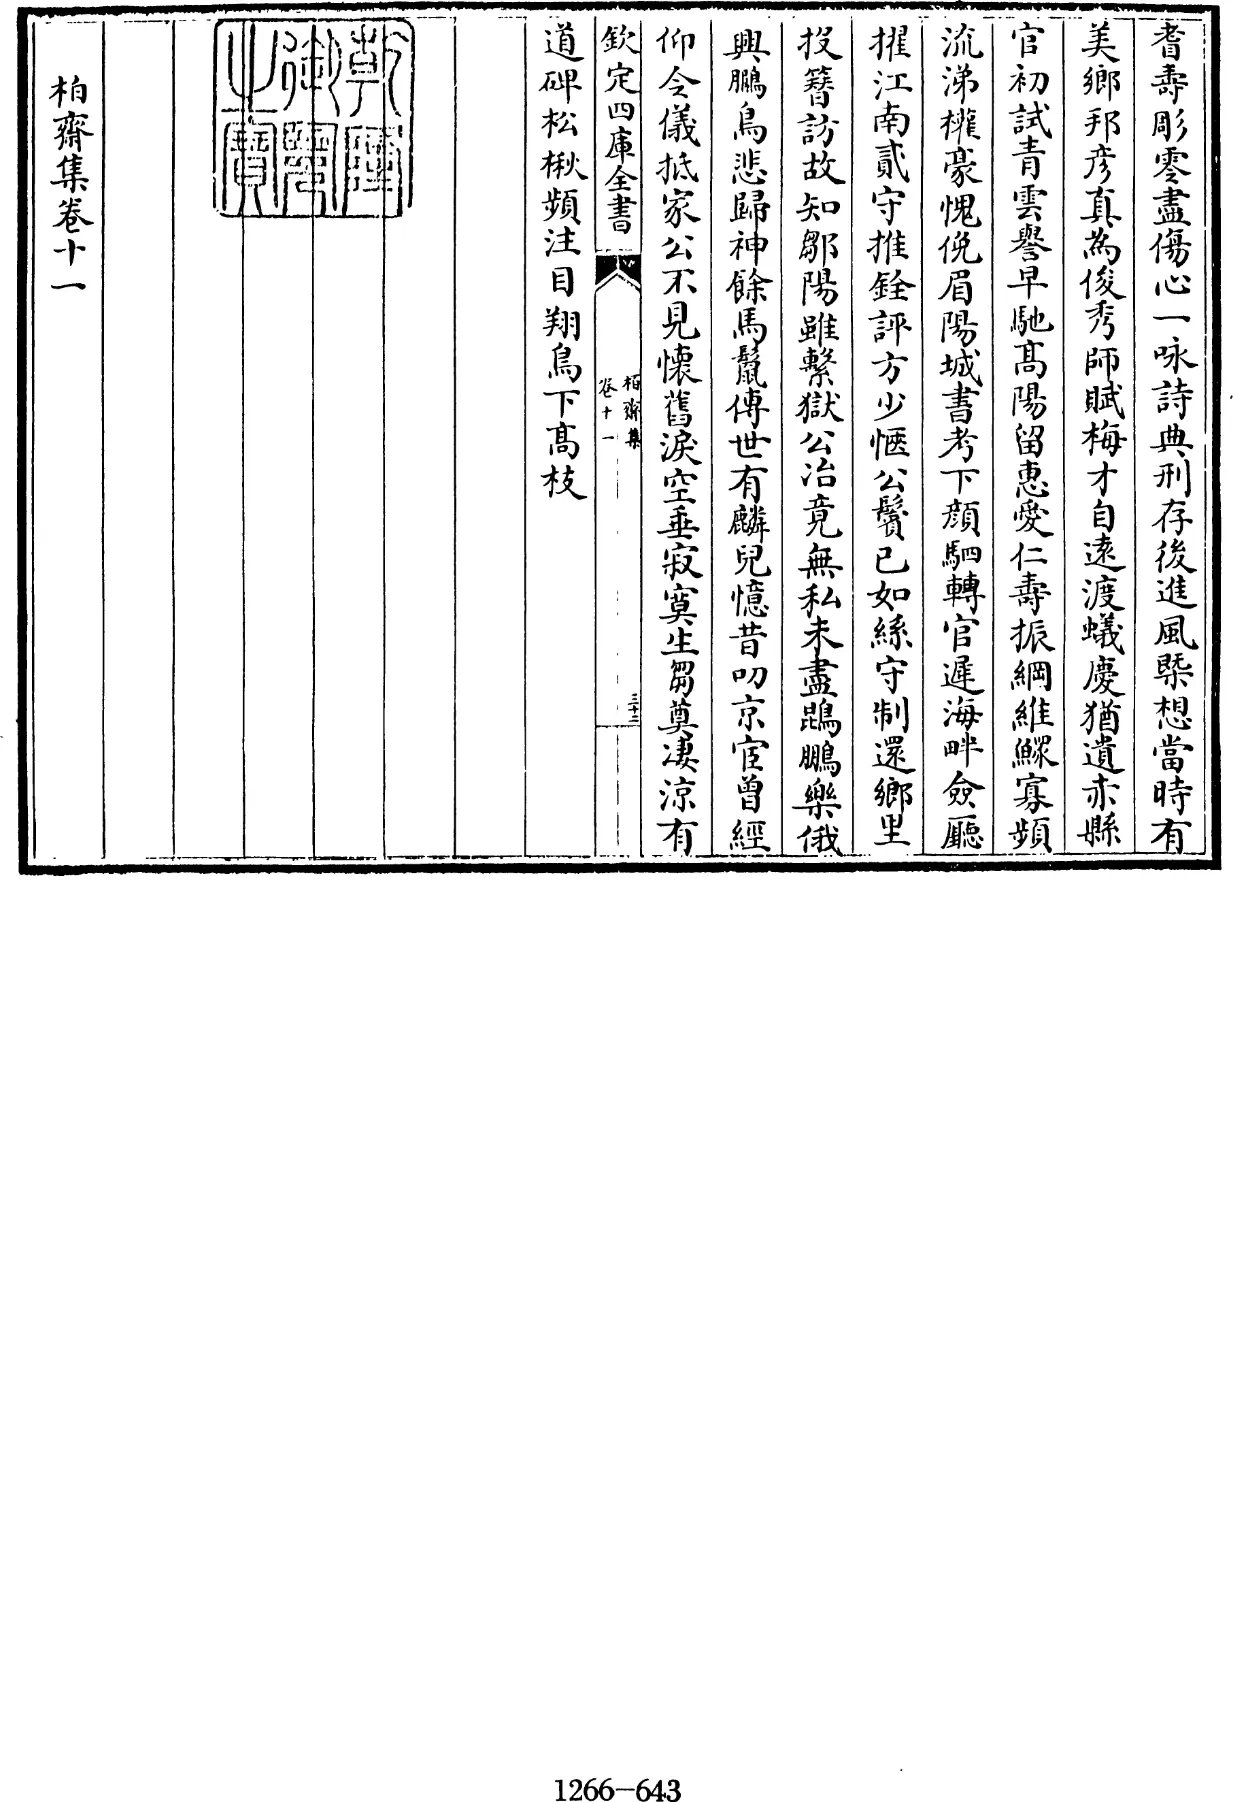 耆壽彫零盡傷心一咏詩典刑存後進風槩想當時有
美鄉邦彦真為俊秀師賦梅才自遠渡蟻慶猶遺赤縣
官初試青雲譽早馳髙陽留惠愛仁壽振綱維鰥寡頻
流涕權豪愧俛眉陽城書考下顔駟轉官遲海畔僉廳
擢江南貳守推銓評方少愜公鬢已如絲守制還鄉里
投簪訪故知鄒陽雖繫獄公冶竟無私未盡鵾鵬樂俄
興鵩鳥悲歸神餘馬鬛傳世有麟兒憶昔叨京宦曾經
仰令儀抵家公不見懷舊淚空垂寂寞生芻奠凄涼有
欽定四庫全書
柏齋集
卷十一
三十三
道碑松楸頻注目翔鳥下髙枝
乾隆御覽之寶
柏齋集卷十一
1266-643